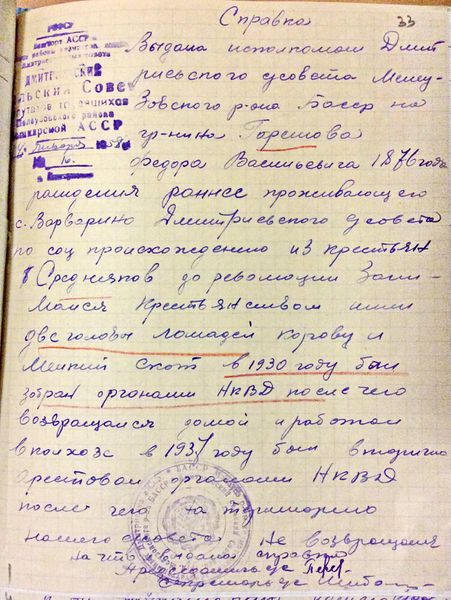 Справка
33
РСФСР
Башгорт АССР
ДМИТРИЕВСКИЙ
СЕЛЬСКИЙ Совет
депутатов трудящихся
Мелеузовского района
Башкирской АССР
Января 1958
№ 16.
Выдана исполкомом Дмит-
риевского с/совета Мелеу-
зовского р-она Басср на
гр-нина Горешова
Федора Васильевича 1876 года
рождения раннее проживающего
с. Варварино Дмитриевского с/совета
по соц происхождению из крестьян
Середняков до революции Зани-
мался крестьянством имел
две головы лошадей корову и
Мелкий скот в 1930 году был
забран органами НКВД после чего
возвращался домой и работал
в колхозе в 1937 году был вторично
арестован органами НКВД
после чего на территорию
нашего с/совета Не возвращался
на что и выдана справка
Председатель с/с
Секретарь с/с